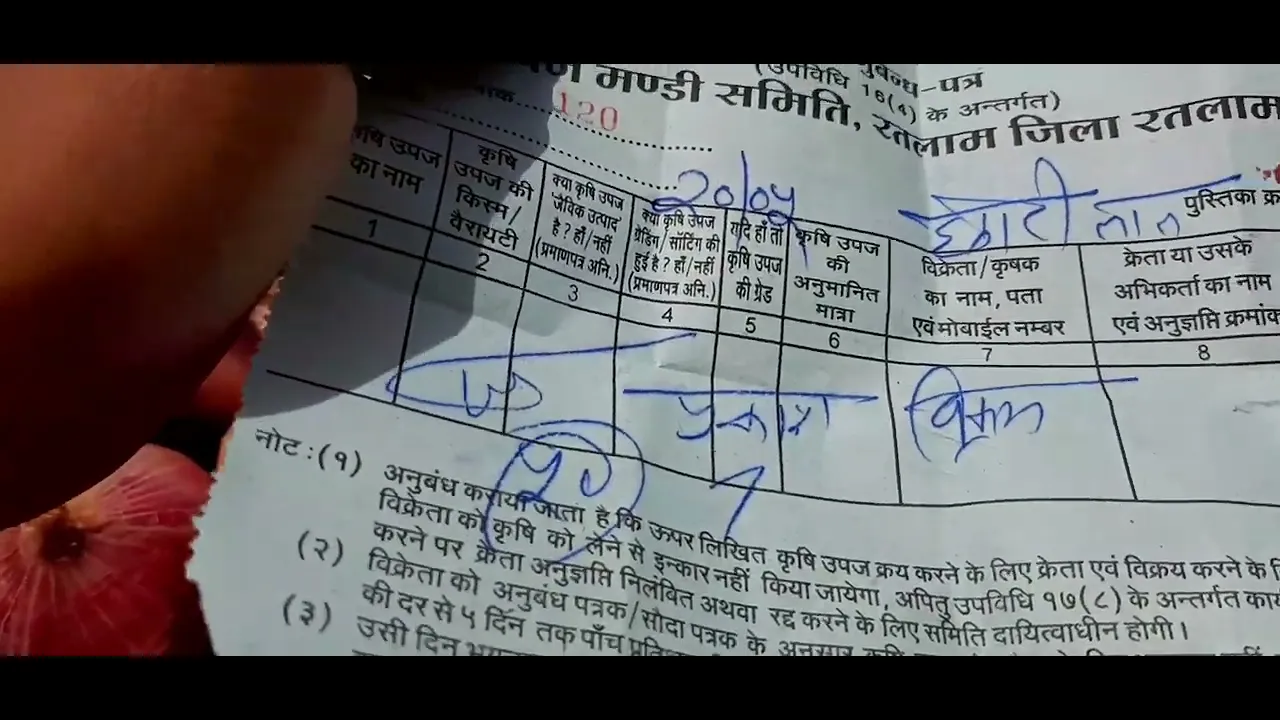 पत्र
(उपविधि 16(4) के अन्तर्गत)
मण्डी समिति, रतलाम जिला रतलाम
120
20/04
लाल
पुस्तिका क्र
कृषि उपज का नाम
कृषि उपज की किस्म/ वैरायटी
क्या कृषि उपज 'जैविक उत्पाद' है ? हाँ/नहीं (प्रमाणपत्र अनि.)
क्या कृषि उपज ग्रेडिंग/सॉर्टिंग की हुई है ? हाँ/नहीं (प्रमाणपत्र अनि.)
यदि हाँ तो कृषि उपज की ग्रेड
कृषि उपज की अनुमानित मात्रा
विक्रेता/कृषक का नाम, पता एवं मोबाईल नम्बर
क्रेता या उसके अभिकर्ता का नाम एवं अनुज्ञप्ति क्रमांक
1 2 3 4 5 6 7 8
प्रकाश विक्रम
नोट : (१) अनुबंध कराया जाता है कि ऊपर लिखित कृषि उपज क्रय करने के लिए क्रेता एवं विक्रय करने के
विक्रेता को कृषि को लेने से इन्कार नहीं किया जायेगा, अपितु उपविधि १७(८) के अन्तर्गत
करने पर क्रेता अनुज्ञप्ति निलंबित अथवा रद्द करने के लिए समिति दायित्वाधीन होगी।
(२) विक्रेता को अनुबंध पत्रक/सौदा पत्रक के अनुसार
की दर से ५ दिन तक पाँच
(३) उसी दिन